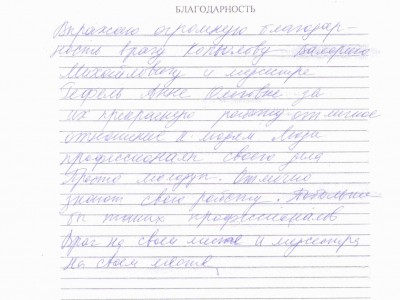 БЛАГОДАРНОСТЬ
Выражаю огромную благодар-
ность врачу Копылову Валерию
Михайловичу и медсестре
Гефель Анне Олеговне за
их прекрасную работу, отличное
отношение к людям. Люди
профессионалы своего дела
Просто молодцы. Отлично
знают свою работу. Побольше
бы таких профессионалов
Врач на своем месте и медсестра
на своем месте